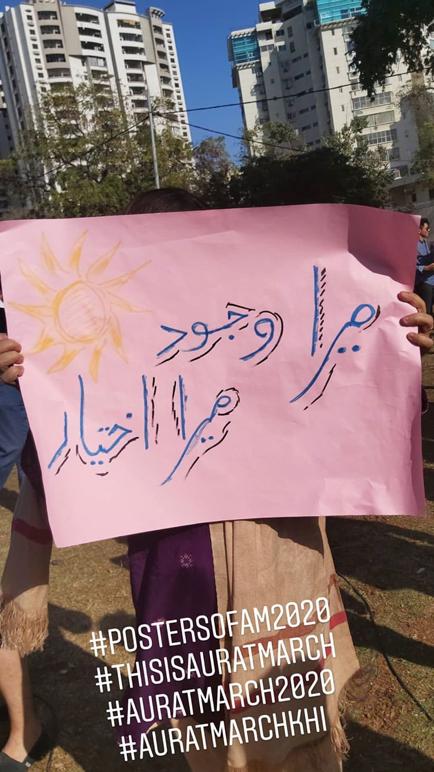 میرا وجود
میرا اختیار
#POSTERSOFAM2020
#THISISAURATMARCH
#AURATMARCH2020
#AURATMARCHKHI